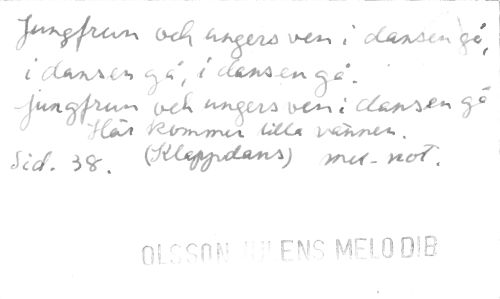 Jungfrun och ungersven i dansen gå,
i dansen gå, i dansen gå.
jungfrun och ungersven i dansen gå
Här kommer lilla vännen.
Sid. 38. (Klappdans) mel-not.
OLSSON ENS MELODIB